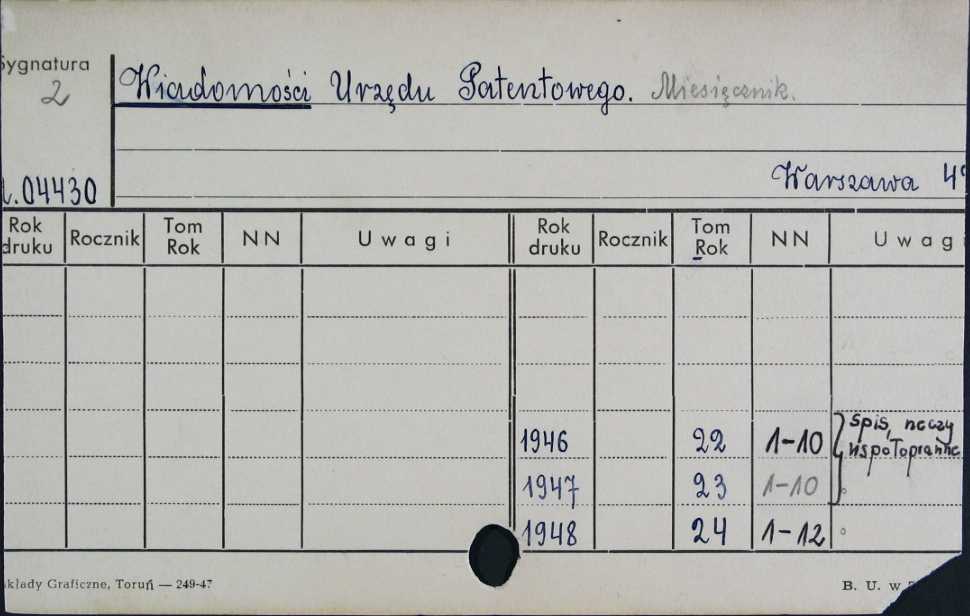 Sygnatura
2
Wiadomości Urzędu Patentowego. Miesięcznik.
04430
Warszawa
Rok druku Rocznik Tom Rok NN Uwagi Rok druku Rocznik Tom Rok NN Uwagi
1946 22 1-10 spis rzeczy
współoprawne
1947 23 1-10
1948 24 1-12
kłady Graficzne, Toruń — 249-47 B. U. w